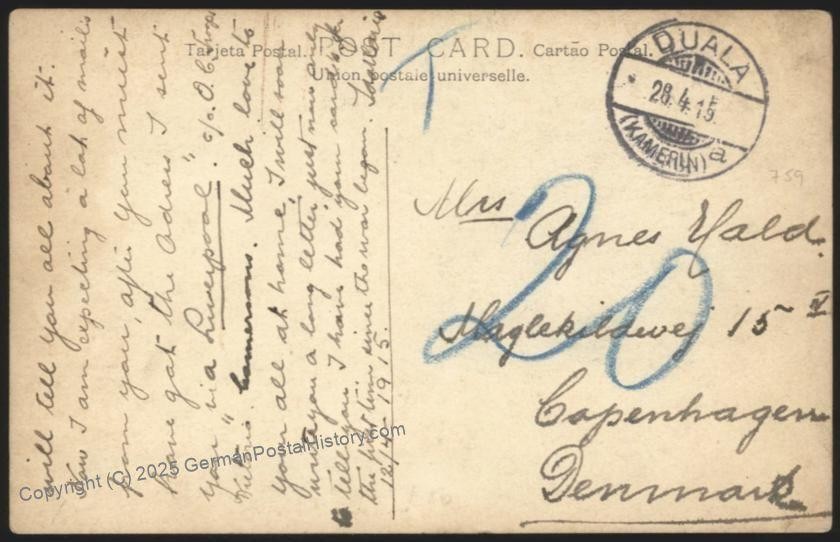 Tarjeta Postal. POST CARD. Cartão Postal.
Union postale universelle.
T
DUALA
28.4.15.
a
(KAMERUN)
759
20
Mrs Agnes Hald.
Maglekildevej 15 IV
Copenhagen
Denmark
will tell you all about it.
Now I am expecting a lot of mails
from you, after you must
have got the Adress I sent
you via Liverpool. c/o. O.C. Troops
"Victoria" Camerouns. Much love to
you all at home, I will soon
write you a long letter, just now only
to tell you I have had your card to-
the first time since the war began.
12/4-1915.
Copyright (C) 2025 GermanPostalHistory.com